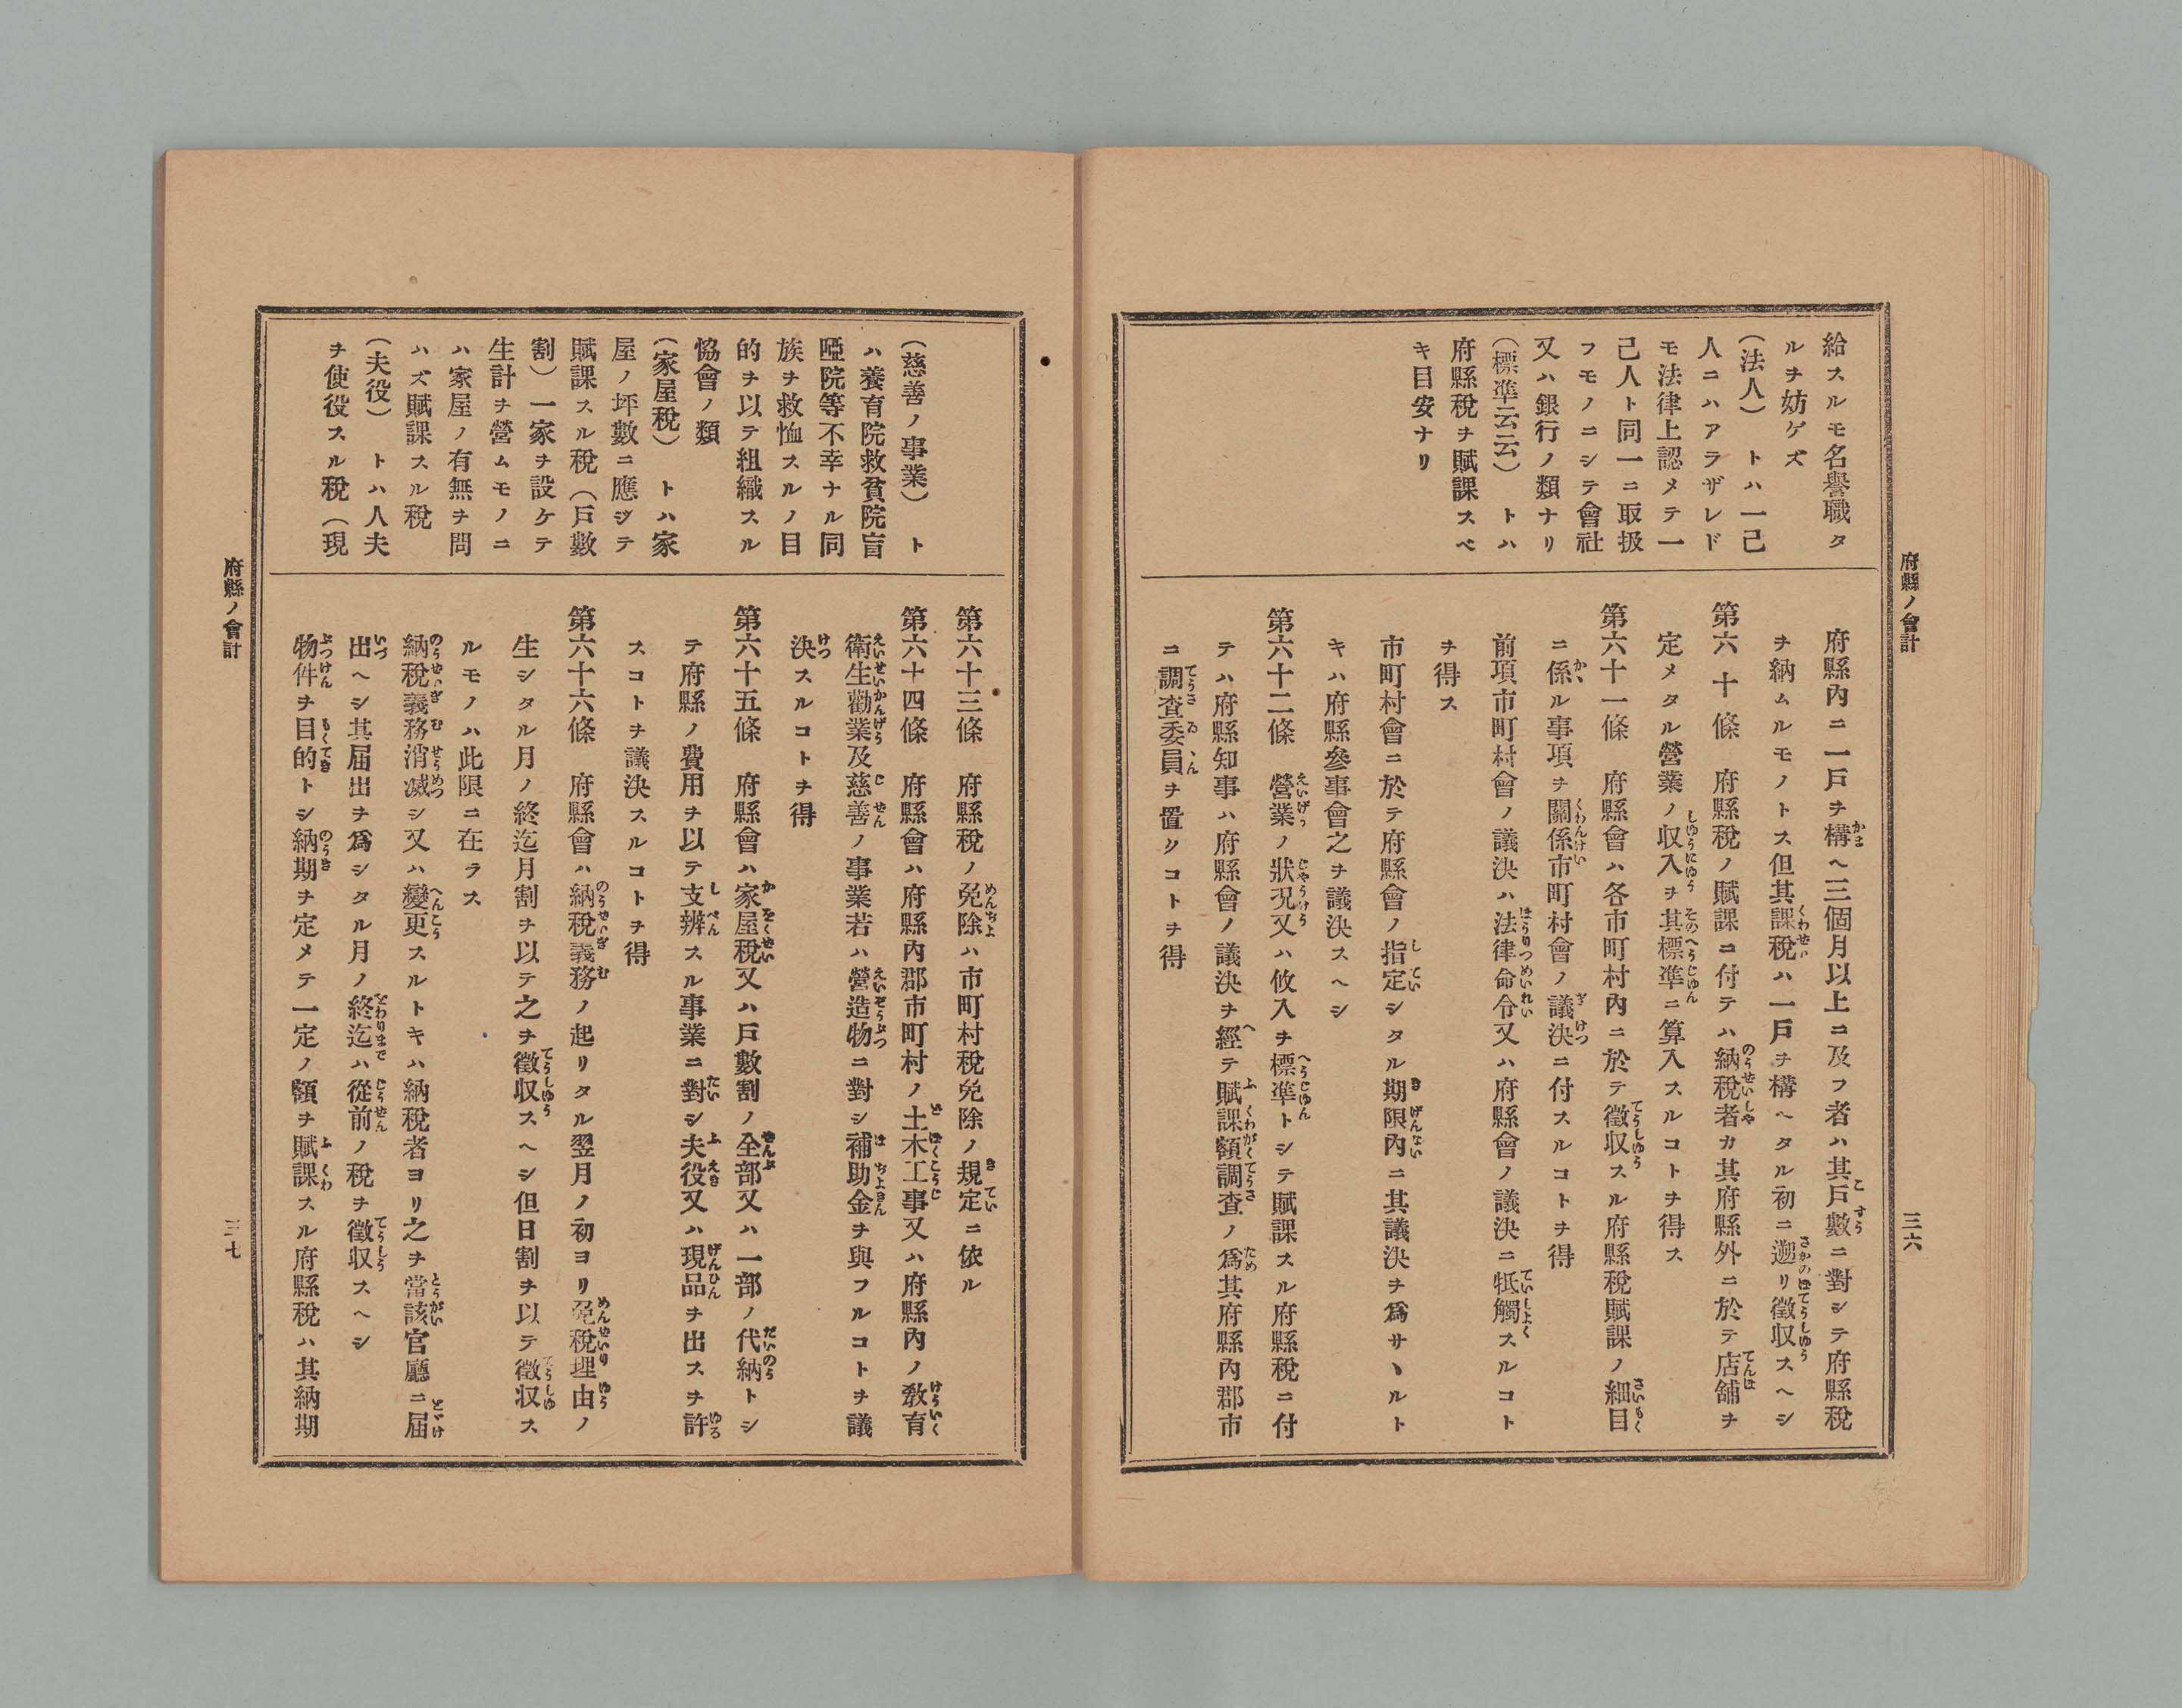 府縣ノ會計
三六
給スルモ名譽職タ
ルヲ妨ゲズ
(法人) トハ一己
人ニハアラザレド
モ法律上認メテ一
己人ト同一ニ取扱
フモノニシテ會社
又ハ銀行ノ類ナリ
(標準云云) トハ
府縣稅ヲ賦課スベ
キ目安ナリ
府縣內ニ一戶ヲ構ヘ三個月以上ニ及フ者ハ其戶數ニ對シテ府縣稅
ヲ納ムルモノトス但其課稅ハ一戶ヲ構ヘタル初ニ遡リ徵収スヘシ
第六十條 府縣稅ノ賦課ニ付テハ納稅者カ其府縣外ニ於テ店舖ヲ
定メタル營業ノ収入ヲ其標準ニ算入スルコトヲ得ス
第六十一條 府縣會ハ各市町村內ニ於テ徵収スル府縣稅賦課ノ細目
ニ係ル事項ヲ關係市町村會ノ議決ニ付スルコトヲ得
前項市町村會ノ議決ハ法律命令又ハ府縣會ノ議決ニ牴觸スルコト
ヲ得ス
市町村會ニ於テ府縣會ノ指定シタル期限內ニ其議決ヲ爲サヽルト
キハ府縣參事會之ヲ議決スヘシ
第六十二條 營業ノ狀況又ハ收入ヲ標準トシテ賦課スル府縣稅ニ付
テハ府縣知事ハ府縣會ノ議決ヲ經テ賦課額調查ノ爲其府縣內郡市
ニ調查委員ヲ置クコトヲ得
(慈善ノ事業) ト
ハ養育院救貧院盲
啞院等不幸ナル同
族ヲ救恤スルノ目
的ヲ以テ組織スル
恊會ノ類
(家屋稅) トハ家
屋ノ坪數ニ應ジテ
賦課スル稅(戶數
割)一家ヲ設ケテ
生計ヲ營ムモノニ
ハ家屋ノ有無ヲ問
ハズ賦課スル稅
(夫役) トハ人夫
ヲ使役スル稅(現
第六十三條 府縣稅ノ免除ハ市町村稅免除ノ規定ニ依ル
第六十四條 府縣會ハ府縣內郡市町村ノ土木工事又ハ府縣內ノ敎育
衛生勸業及慈善ノ事業若ハ營造物ニ對シ補助金ヲ與フルコトヲ議
決スルコトヲ得
第六十五條 府縣會ハ家屋稅又ハ戶數割ノ全部又ハ一部ノ代納トシ
テ府縣ノ費用ヲ以テ支辨スル事業ニ對シ夫役又ハ現品ヲ出スヲ許
スコトヲ議決スルコトヲ得
第六十六條 府縣會ハ納稅義務ノ起リタル翌月ノ初ヨリ免稅理由ノ
生シタル月ノ終迄月割ヲ以テ之ヲ徵収スヘシ但日割ヲ以テ徵収ス
ルモノハ此限ニ在ラス
納稅義務消滅シ又ハ變更スルトキハ納稅者ヨリ之ヲ當該官廳ニ届
出ヘシ其届出ヲ爲シタル月ノ終迄ハ從前ノ稅ヲ徵収スヘシ
物件ヲ目的トシ納期ヲ定メテ一定ノ額ヲ賦課スル府縣稅ハ其納期
府縣ノ會計
三七